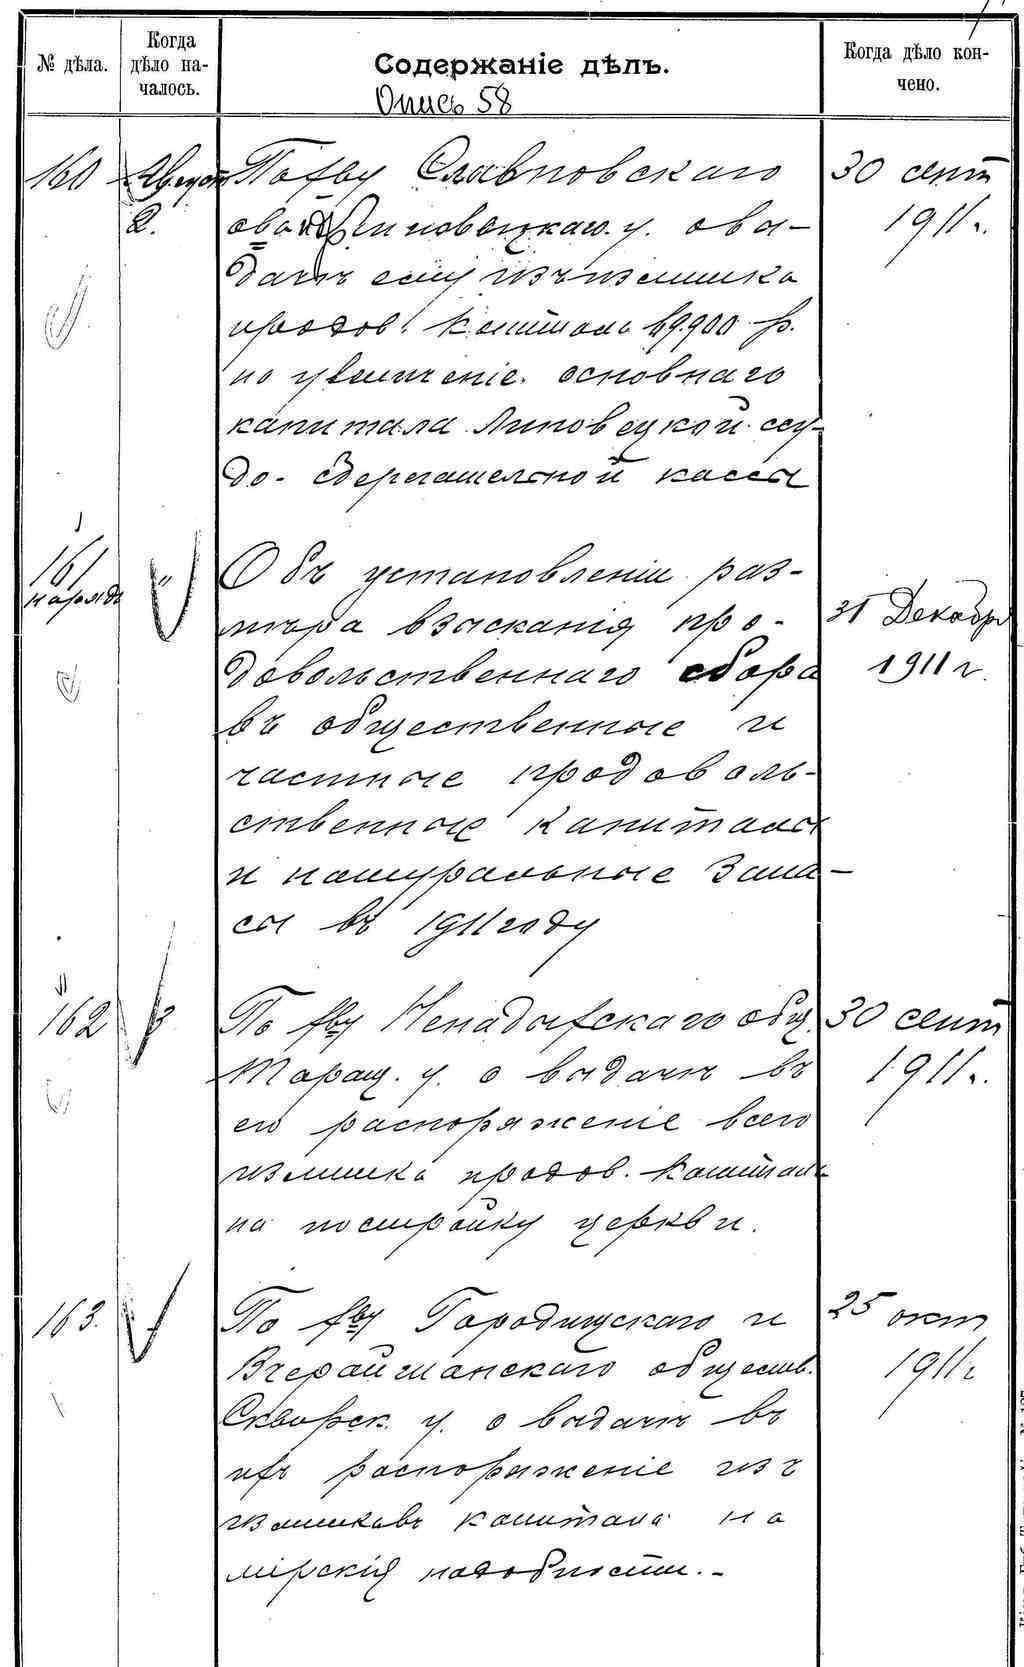 № дѣла.
Когда
дѣло на-
чалось.
Содержаніе дѣлъ.
Когда дѣло кон-
чено.
Опись 58
160
Август
2.
По хву Славновскаго
Липовецкаго у. о вы-
дачѣ ему изъ излишка
продов. капитала 19.900 р.
на увеличеніе основнаго
капитала Липовецкой ссу-
до-сберегательной кассы
30 сент
1911 г.
161
наряд
"
Объ установленіи раз-
мѣра взысканія про-
довольственнаго сбора
въ общественные и
частные продоволь-
ственные капиталы
и натуральные запа-
сы въ 1911 году
31 Декабря
1911 г.
162
3
По хву Ненадыхскаго общ.
Таращ. у. о выдачѣ въ
его распоряженіе всего
излишка продов. капитала
на постройку церкви.
30 сент
1911 г.
163.
По хву Городищскаго и
Вчерайшанскаго обществ.
Сквирск. у. о выдачѣ въ
ихъ распоряженіе изъ
излишковъ капитала на
мірскія надобности.-
25 окт
1911 г.